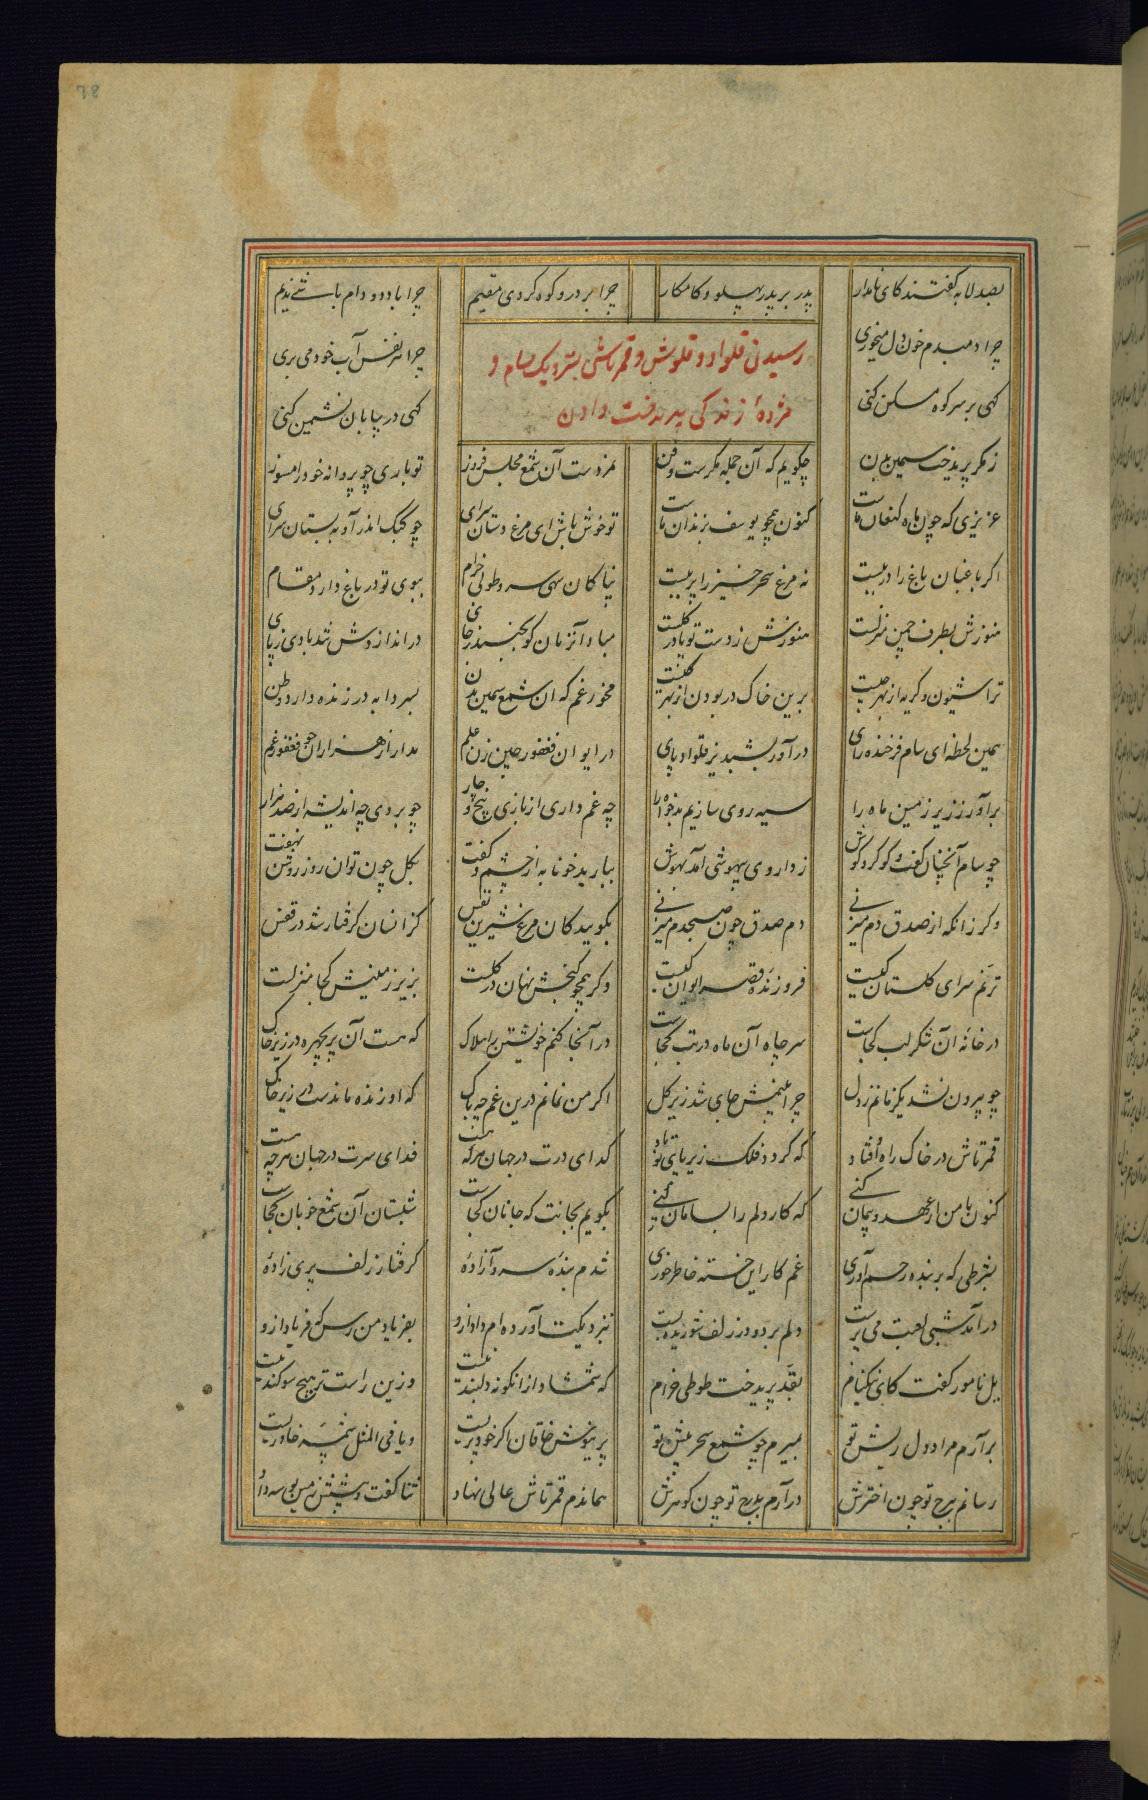 78
بصد لابه گفتند کای نامدار
پدر بر پدر پهلو و کامکار
چرا بر در و کوه کردی مقیم
چرا با دد و دام باشی ندیم
چرا دمبدم خون دل میخوری
چرا هر نفس آب خود می بری
رسیدن قلواد و قلوش و قمرتاش بنزدیک سام و
کهی بر سر کوه مسکن کنی
کهی در بیابان نشیمن کنی
مژدهٔ زندگی پریدخت دادن
ز مکر پریدخت سیمین بدن
چکویم که آن جمله مکرست و فن
نمردست آن شمع مجلس فروز
تو باری چو پروانه خود را مسوز
عزیزی که چون ماه کنعان ماست
کنون همچو یوسف بزندان ماست
تو خوش باش ای مرغ دستان سرای
چو کبک اندر آ و به بستان سرای
اکر باغبان باغ را در ببست
نه مرغ سحر خیز را پر ببست
نیا کان سهی سرو طوبی خرام
ببوی تو در باغ دارد مقام
هنوزش بطرف چمن منزلست
هنوزش ز دست تو پا در گلست
مبادا آنزمان کو بجنبد ز جای
در اندازدش تند بادی ز پای
ترا شیون و گریه از بهر چیست
برین خاک در بودن از بهر کیست
مخور غم که آن شمع سیمین بدن
بسردابه در زنده دارد وطن
همین لحظه ای سام فرخنده رای
درآور بشبدیز قلواد پای
در ایوان فغفور چین زن علم
مدار از هزاران چو فغفور غم
برآور ز زیر زمین ماه را
سیه روی سازیم بدخواه را
چه غم داری از بازی پنج و چار
چو بردی چه اندیشه از صد هزار
چو سام آنچنان گفت و گو کرد گوش
ز داروی بیهوشی آمد بهوش
ببارید خونابه از چشم و گفت
بگل چون توان روز روشن نهفت
وگر زانکه از صدق دم میزنی
دم صدق چون صبحدم میزنی
بگویید کان مرغ شیرین نفس
کز انسان گرفتار شد در قفس
ترنم سرای گلستان کیست
فروزنده قصر و ایوان کیست
وگر همچو گنجش نهان در گلست
بزیر زمینش کجا منزلست
در خانه آن شکر لب کجاست
سر چاه آن ماه در تب کجاست
در آنجا کنم خویشتن را هلاک
که هست آن پریچهره در زیر خاک
چو بیرون نشد یکزمانم ز دل
چرا نیمش جای شد زیر گل
اگر من نمانم درین غم چه باک
که او زنده ماندست در زیر خاک
قمرتاش در خاک راه اوفتاد
که گردد فلک زیر پای تو باد
گدای درت در جهان هرکه هست
فدای سرت در جهان هرچه هست
کنون با من ار عهد و پیمان کنی
که کار دلم را بسامان کنی
بگویم بجانت که جانان کجاست
شبستان آن شمع خوبان کجاست
بشرطی که بر بنده رحم آوری
غم کار این خسته خاطر خوری
شدم بندهٔ سرو آزادهٔ
گرفتار زلف پری زادهٔ
درآمد شبی لعبت می پرست
دلم برد و در زلف شوریده بست
بنزدیکت آورده ام داد ازو
بفریاد من رس که فریاد ازو
یل نامور گفت کای نیکنام
بقد پریدخت طوطی خرام
که شمشاد از انگونه دلبند نیست
وزین راست تر هیچ سوگند نیست
برآرم مراد دل ریش تو
بمیرم چو شمع سحر پیش تو
پریوش خاقان اگر خود پریست
و یا فی المثل شمسهٔ خاوریست
رسانم ببرج تو چون اخترش
درآرم بدرج تو چون گوهرش
بماندم قمرتاش عالی نهاد
ثنا گفت و پیشش زمین بوسه داد